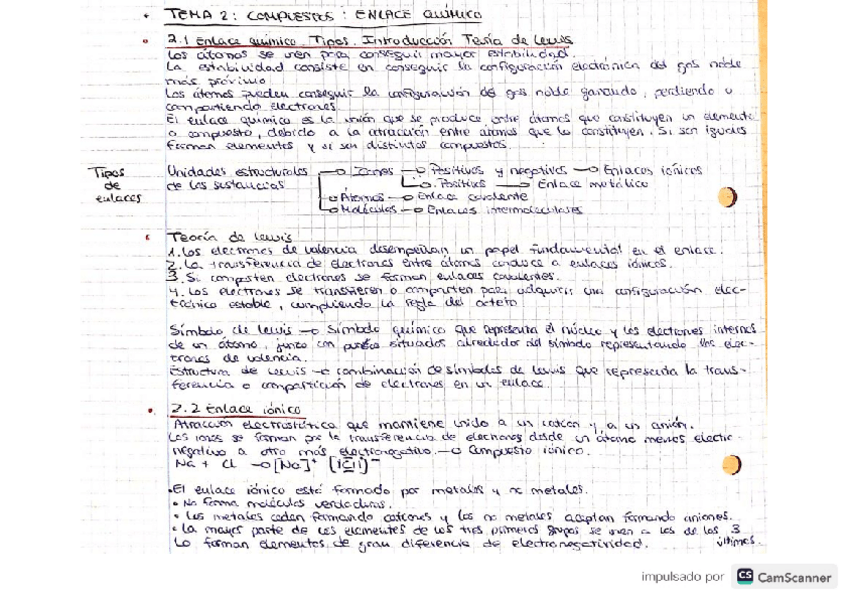 • TEMA 2: COMPUESTOS: ENLACE QUÍMICO
• 2.1 Enlace químico. Tipos. Introducción Teoría de Lewis
Los átomos se unen para conseguir mayor estabilidad.
La estabilidad consiste en conseguir la configuración electrónica del gas noble
más próximo
Los átomos pueden conseguir la configuración del gas noble ganando, perdiendo o
compartiendo electrones
El enlace químico es la unión que se produce entre átomos que constituyen un elemento
o compuesto, debido a la atracción entre átomos que lo constituyen. Si son iguales
forman elementos y si son distintos compuestos.
Tipos de enlaces
Unidades estructurales de las sustancias → Iones → Positivos y negativos → Enlaces iónicos
→ Positivos → Enlace metálico
→ Átomos → Enlace covalente
→ Moléculas → Enlaces intermoleculares
• Teoría de Lewis
1. Los electrones de valencia desempeñan un papel fundamental en el enlace.
2. La transferencia de electrones entre átomos conduce a enlaces iónicos.
3. Si comparten electrones se forman enlaces covalentes.
4. Los electrones se transfieren o comparten para adquirir una configuración elec-
trónica estable, cumpliendo la regla del octeto
Símbolo de Lewis → Símbolo químico que representa el núcleo y los electrones internos
de un átomo, junto con puntos situados alrededor del símbolo representando los elec-
trones de valencia.
Estructura de Lewis → combinación de símbolos de Lewis que representa la trans-
ferencia o compartición de electrones en un enlace.
• 2.2 Enlace iónico
Atracción electrostática que mantiene unido a un catión y a un anión.
Los iones se forman por la transferencia de electrones desde un átomo menos electro-
negativo a otro más electronegativo. → Compuesto iónico.
Na + Cl → [Na]⁺ [Cl]⁻
• El enlace iónico está formado por metales y no metales.
• No forma moléculas verdaderas.
• Los metales ceden formando cationes y los no metales aceptan formando aniones.
• La mayor parte de los elementos de los tres primeros grupos se unen a los de los 3 últimos.
Lo forman elementos de gran diferencia de electronegatividad.
impulsado por CS CamScanner